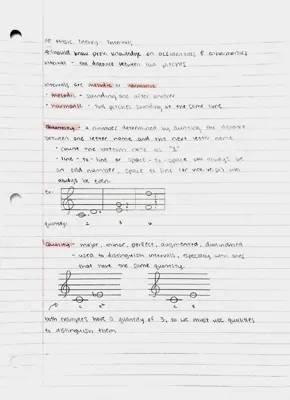 AP Music Theory: Intervals
should know prior knowledge on accidentals & enharmonics
intervals - the distance between two pitches
intervals are melodic or harmonic
• melodic - sounding one after another
• harmonic - two pitches sounding at the same time
Quantity - a number determined by counting the distance
between one letter name and the next letter name
• count the bottom note as "1"
• line-to-line or space-to-space will always be
an odd number, space to line (or vice versa) will
always be even.
ex:
quantity: 2 3 6
Quality - major, minor, perfect, augmented, diminished
- used to distinguish intervals, especially with ones
that have the same quantity.
both examples have a quantity of 3, so we must use qualities
to distinguish them